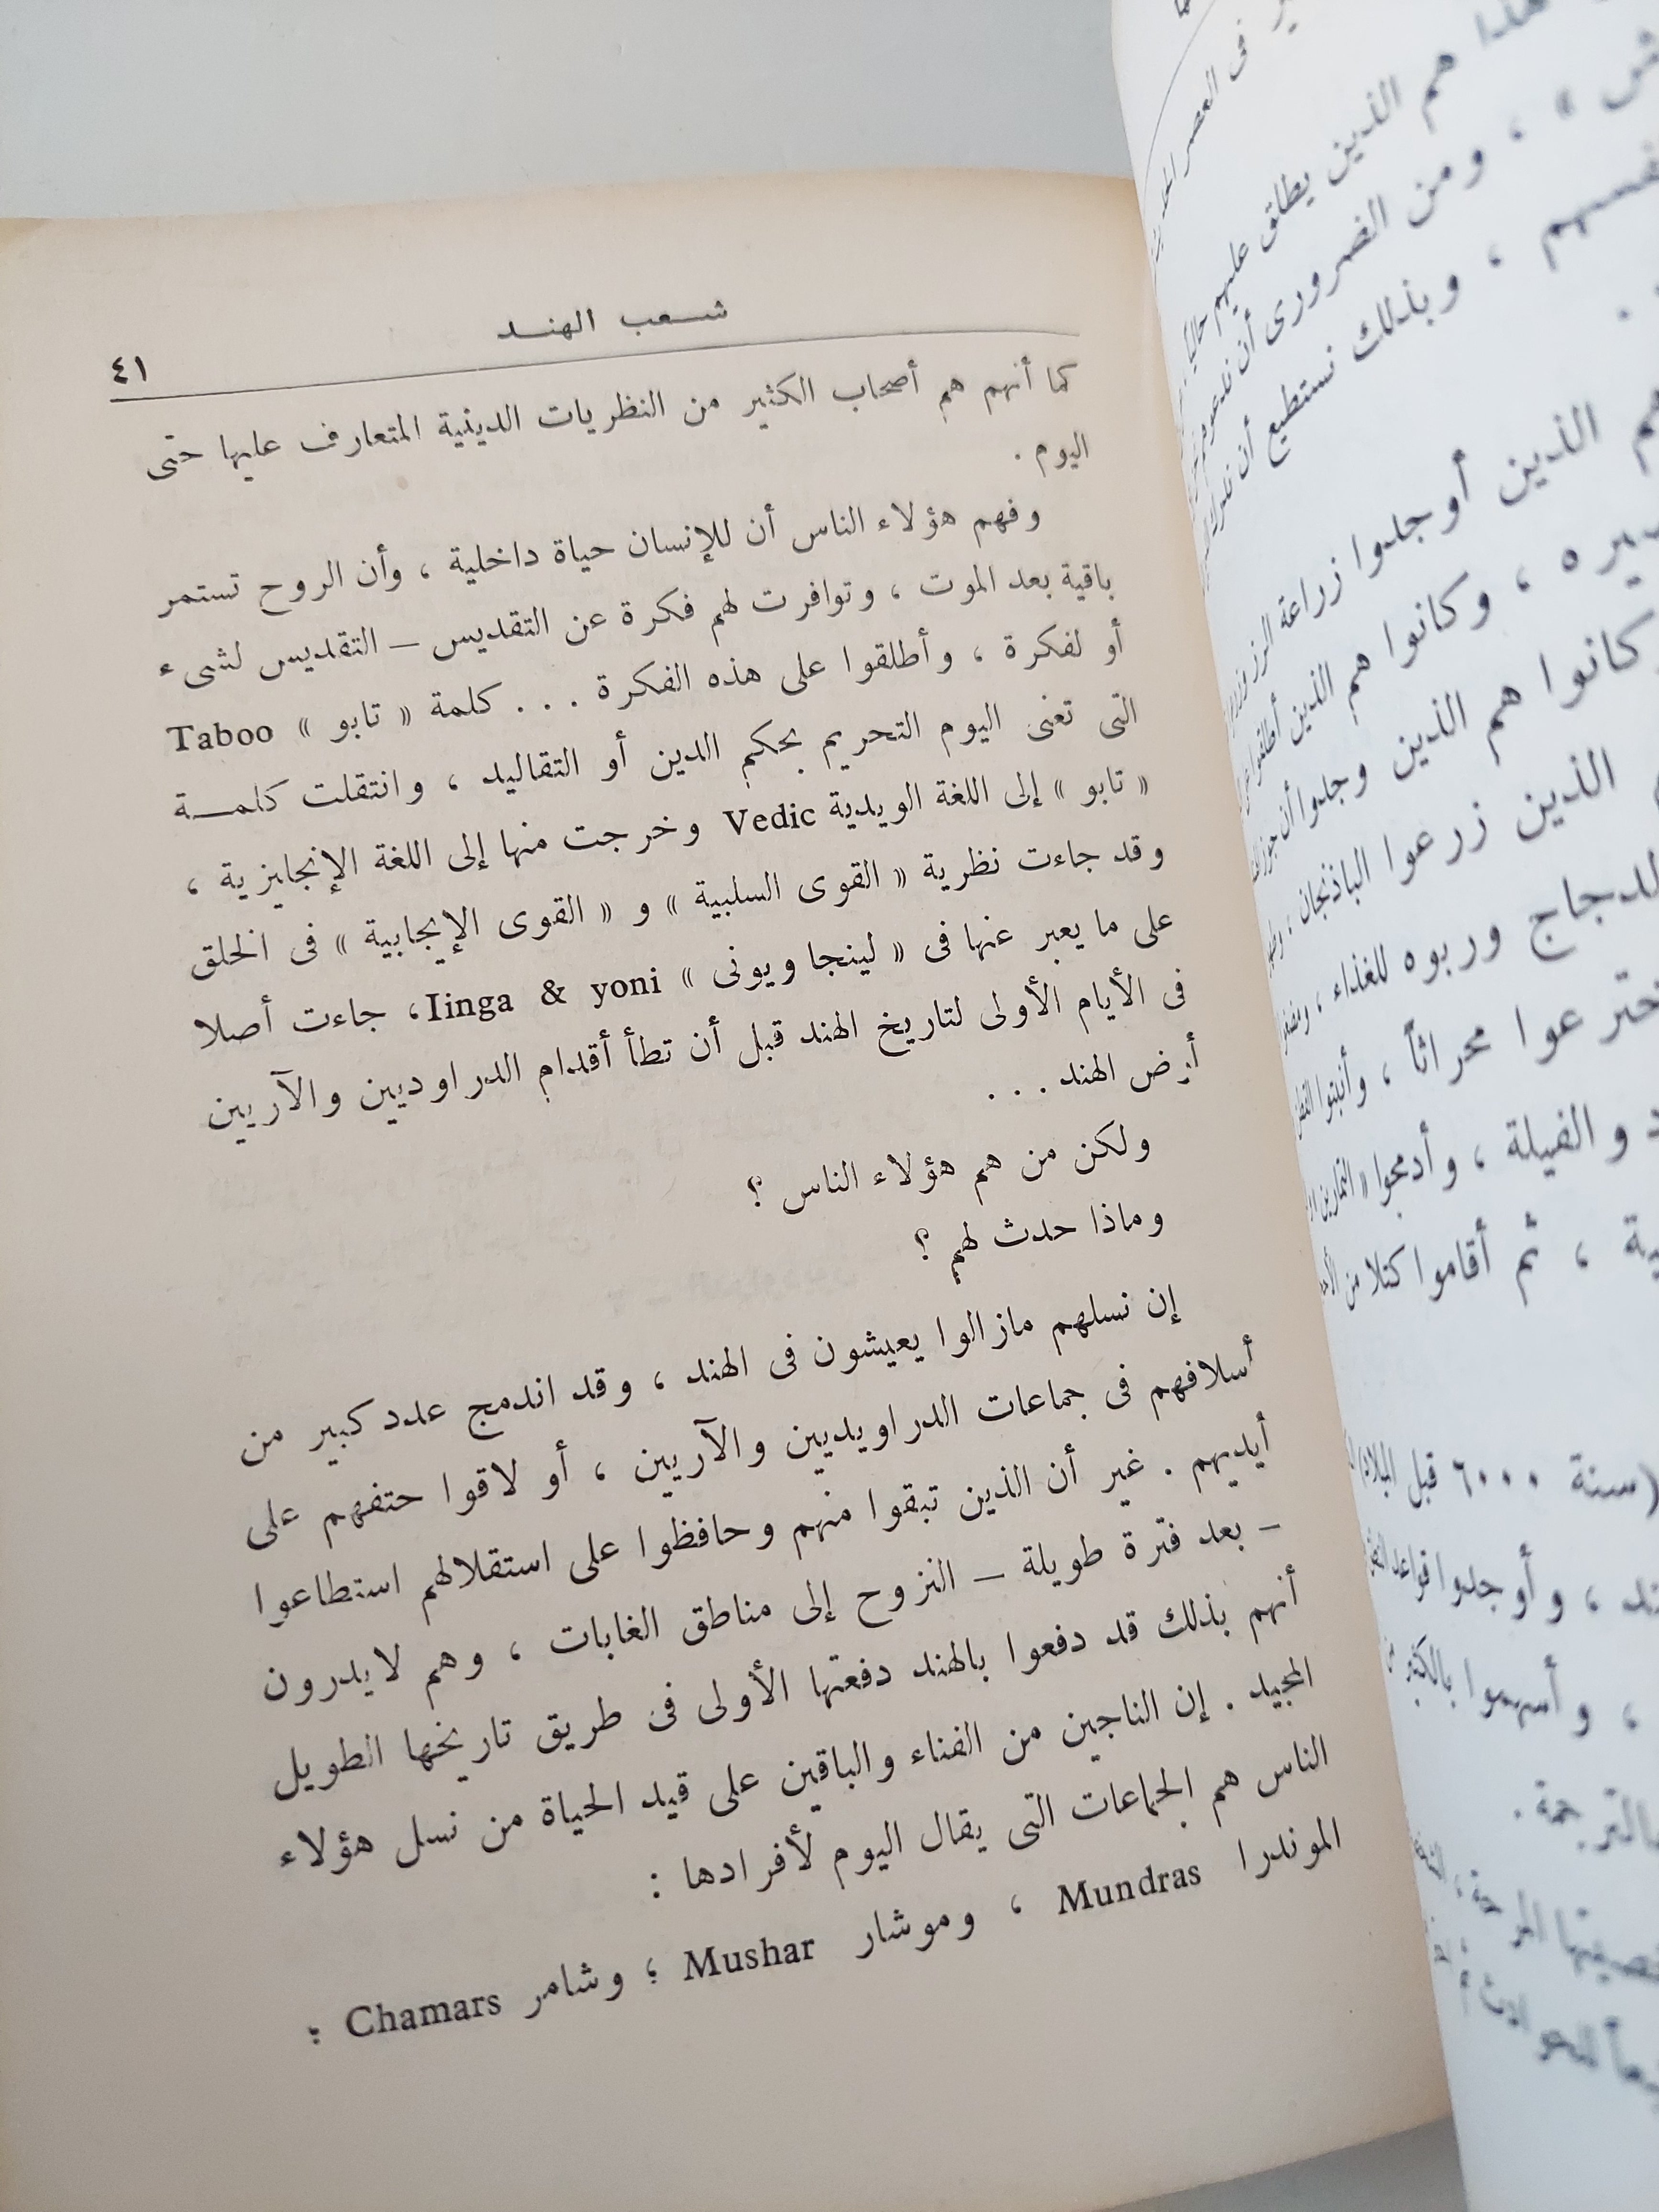 شعب الهند
٤١
كما أنهم هم أصحاب الكثير من النظريات الدينية المتعارف عليها حتى
اليوم .
وفهم هؤلاء الناس أن للإنسان حياة داخلية ، وأن الروح تستمر
باقية بعد الموت ، وتوافرت لهم فكرة عن التقديس – التقديس لشىء
أو لفكرة ، وأطلقوا على هذه الفكرة . . . كلمة « تابو » Taboo
التى تعنى اليوم التحريم بحكم الدين أو التقاليد ، وانتقلت كلمة
« تابو » إلى اللغة الويدية Vedic وخرجت منها إلى اللغة الإنجليزية ،
وقد جاءت نظرية « القوى السلبية » و « القوى الإيجابية » فى الخلق
على ما يعبر عنها فى « لينجا ويونى » Iinga & yoni، جاءت أصلا
فى الأيام الأولى لتاريخ الهند قبل أن تطأ أقدام الدراوديين والآريين
أرض الهند . . .
ولكن من هم هؤلاء الناس ؟
وماذا حدث لهم ؟
إن نسلهم مازالوا يعيشون فى الهند ، وقد اندمج عدد كبير من
أسلافهم فى جماعات الدراويديين والآريين ، أو لاقوا حتفهم على
أيديهم . غير أن الذين تبقوا منهم وحافظوا على استقلالهم استطاعوا
– بعد فترة طويلة – النزوح إلى مناطق الغابات ، وهم لايدرون
أنهم بذلك قد دفعوا بالهند دفعتها الأولى فى طريق تاريخها الطويل
المجيد . إن الناجين من الفناء والباقين على قيد الحياة من نسل هؤلاء
الناس هم الجماعات التى يقال اليوم لأفرادها :
الموندرا Mundras ، وموشار Mushar ؛ وشامر Chamars ؛
فى العصر
هذا هم الذين يطلق عليهم حاليا
، ومن الضرورى أن ندعوهم
، وبذلك نستطيع أن
الذين أوجدوا زراعة الرز
، وكانوا هم الذين أطلقوا
وكانوا هم الذين وجدوا أن جوز
الذين زرعوا الباذنجان ،
الدجاج وربوه للغذاء ،
محراثاً ، وأنبتوا
والفيلة ، وأدمجوا « التمارين
، ثم أقاموا كتلا من
(سنة ٦٠٠٠ قبل الميلاد)
، وأوجدوا قواعد
، وأسهموا بالكثير من
بالترجمة .